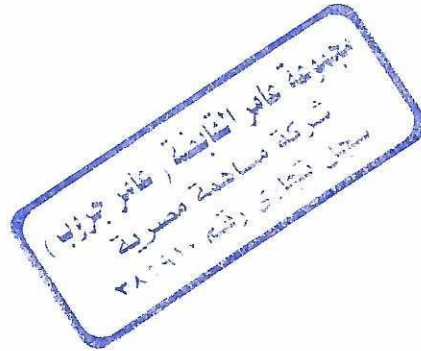 مجموعة عامر القابضة ( عامر جروب )
شركة مساهمة مصرية
سجل تجارى رقم